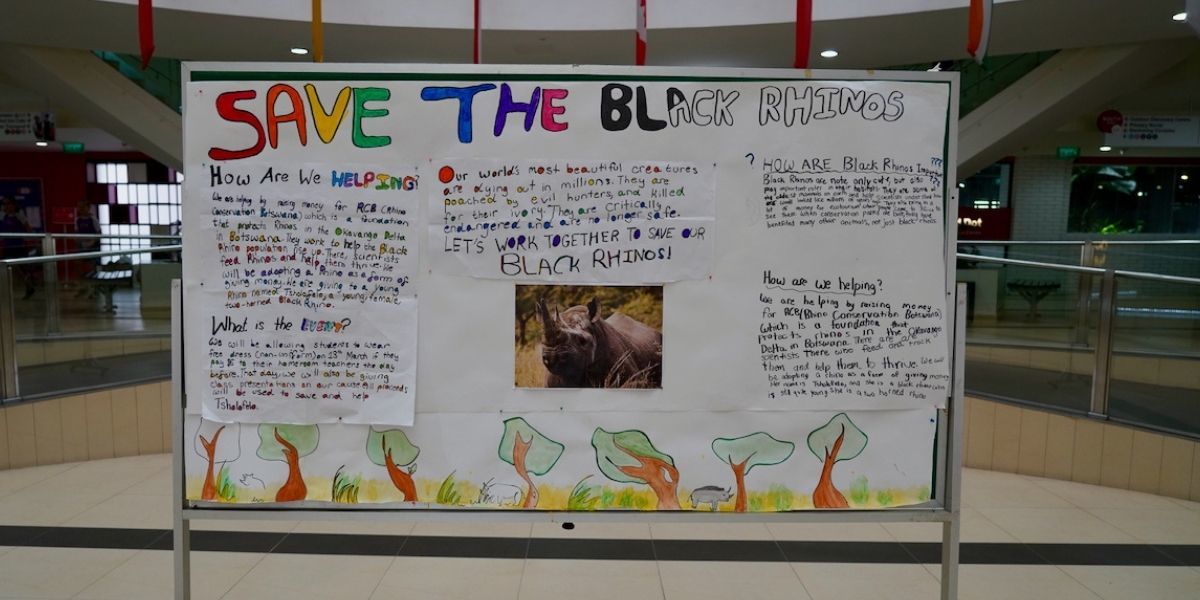 SAVE THE BLACK RHINOS
How Are We HELPING?
We are helping by raising money for RCB (Rhino
Conservation Botswana) which is a foundation
that protects Rhinos in the Okavango Delta
in Botswana. They work to help the Black
Rhino population rise up. There, scientists
feed Rhinos and help them thrive. We
will be adopting a Rhino as a form of
giving money. We are giving to a young
Rhino named Tsholofelo, a young, female,
two-horned Black Rhino.
What is the EVENT?
We will be allowing students to wear
free dress (non-uniform) on March if they
pay to their homeroom teachers the day
before. That day, we will also be giving
class presentations on our cause. All proceeds
will be used to save and help
Tsholofelo.
Our world's most beautiful creatures
are dying out in millions. They are
poached by evil hunters, and killed
for their ivory. They are critically
endangered and are no longer safe.
LET'S WORK TOGETHER TO SAVE OUR
BLACK RHINOS!
? HOW ARE Black Rhinos ???
Black Rhinos are not only but also
play important roles in their habitats. They are some of
the oldest
benefited many other animals, not just black rhinos.
How are we helping?
We are helping by raising money
for RCB (Rhino Conservation Botswana)
which is a foundation that
protects rhinos in the Okavango
Delta in Botswana. There are
scientists There who feed and track
them and help them to thrive. We will
be adopting a rhino as a form of giving money
Her name is Tsholofelo, and she is a black rhino who
is still quite young She is a two horned rhino